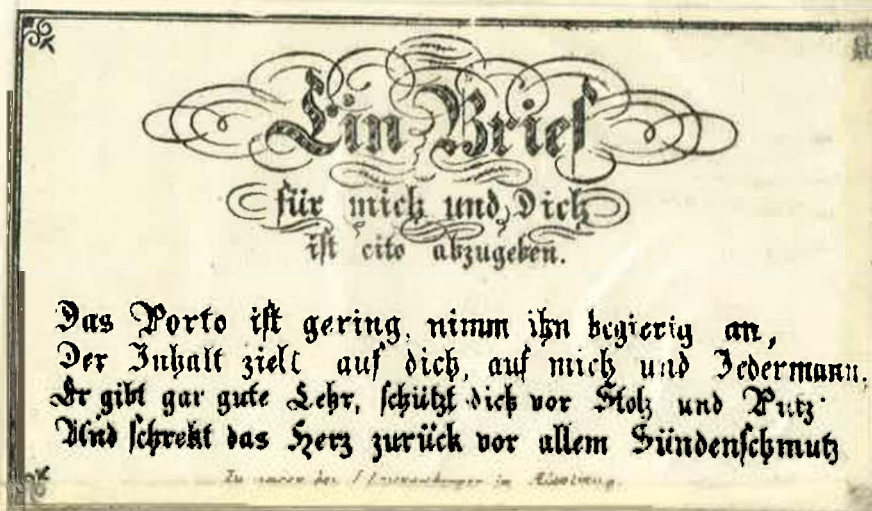 Ein Brief
für mich und Dich
ist cito abzugeben.
Das Porto ist gering, nimm ihn begierig an,
Der Inhalt zielt auf dich, auf mich und Jedermann.
Er gibt gar gute Lehr, schützt dich vor Stolz und Putz
Und schrekt das Herz zurück vor allem Sündenschmutz
Zu in